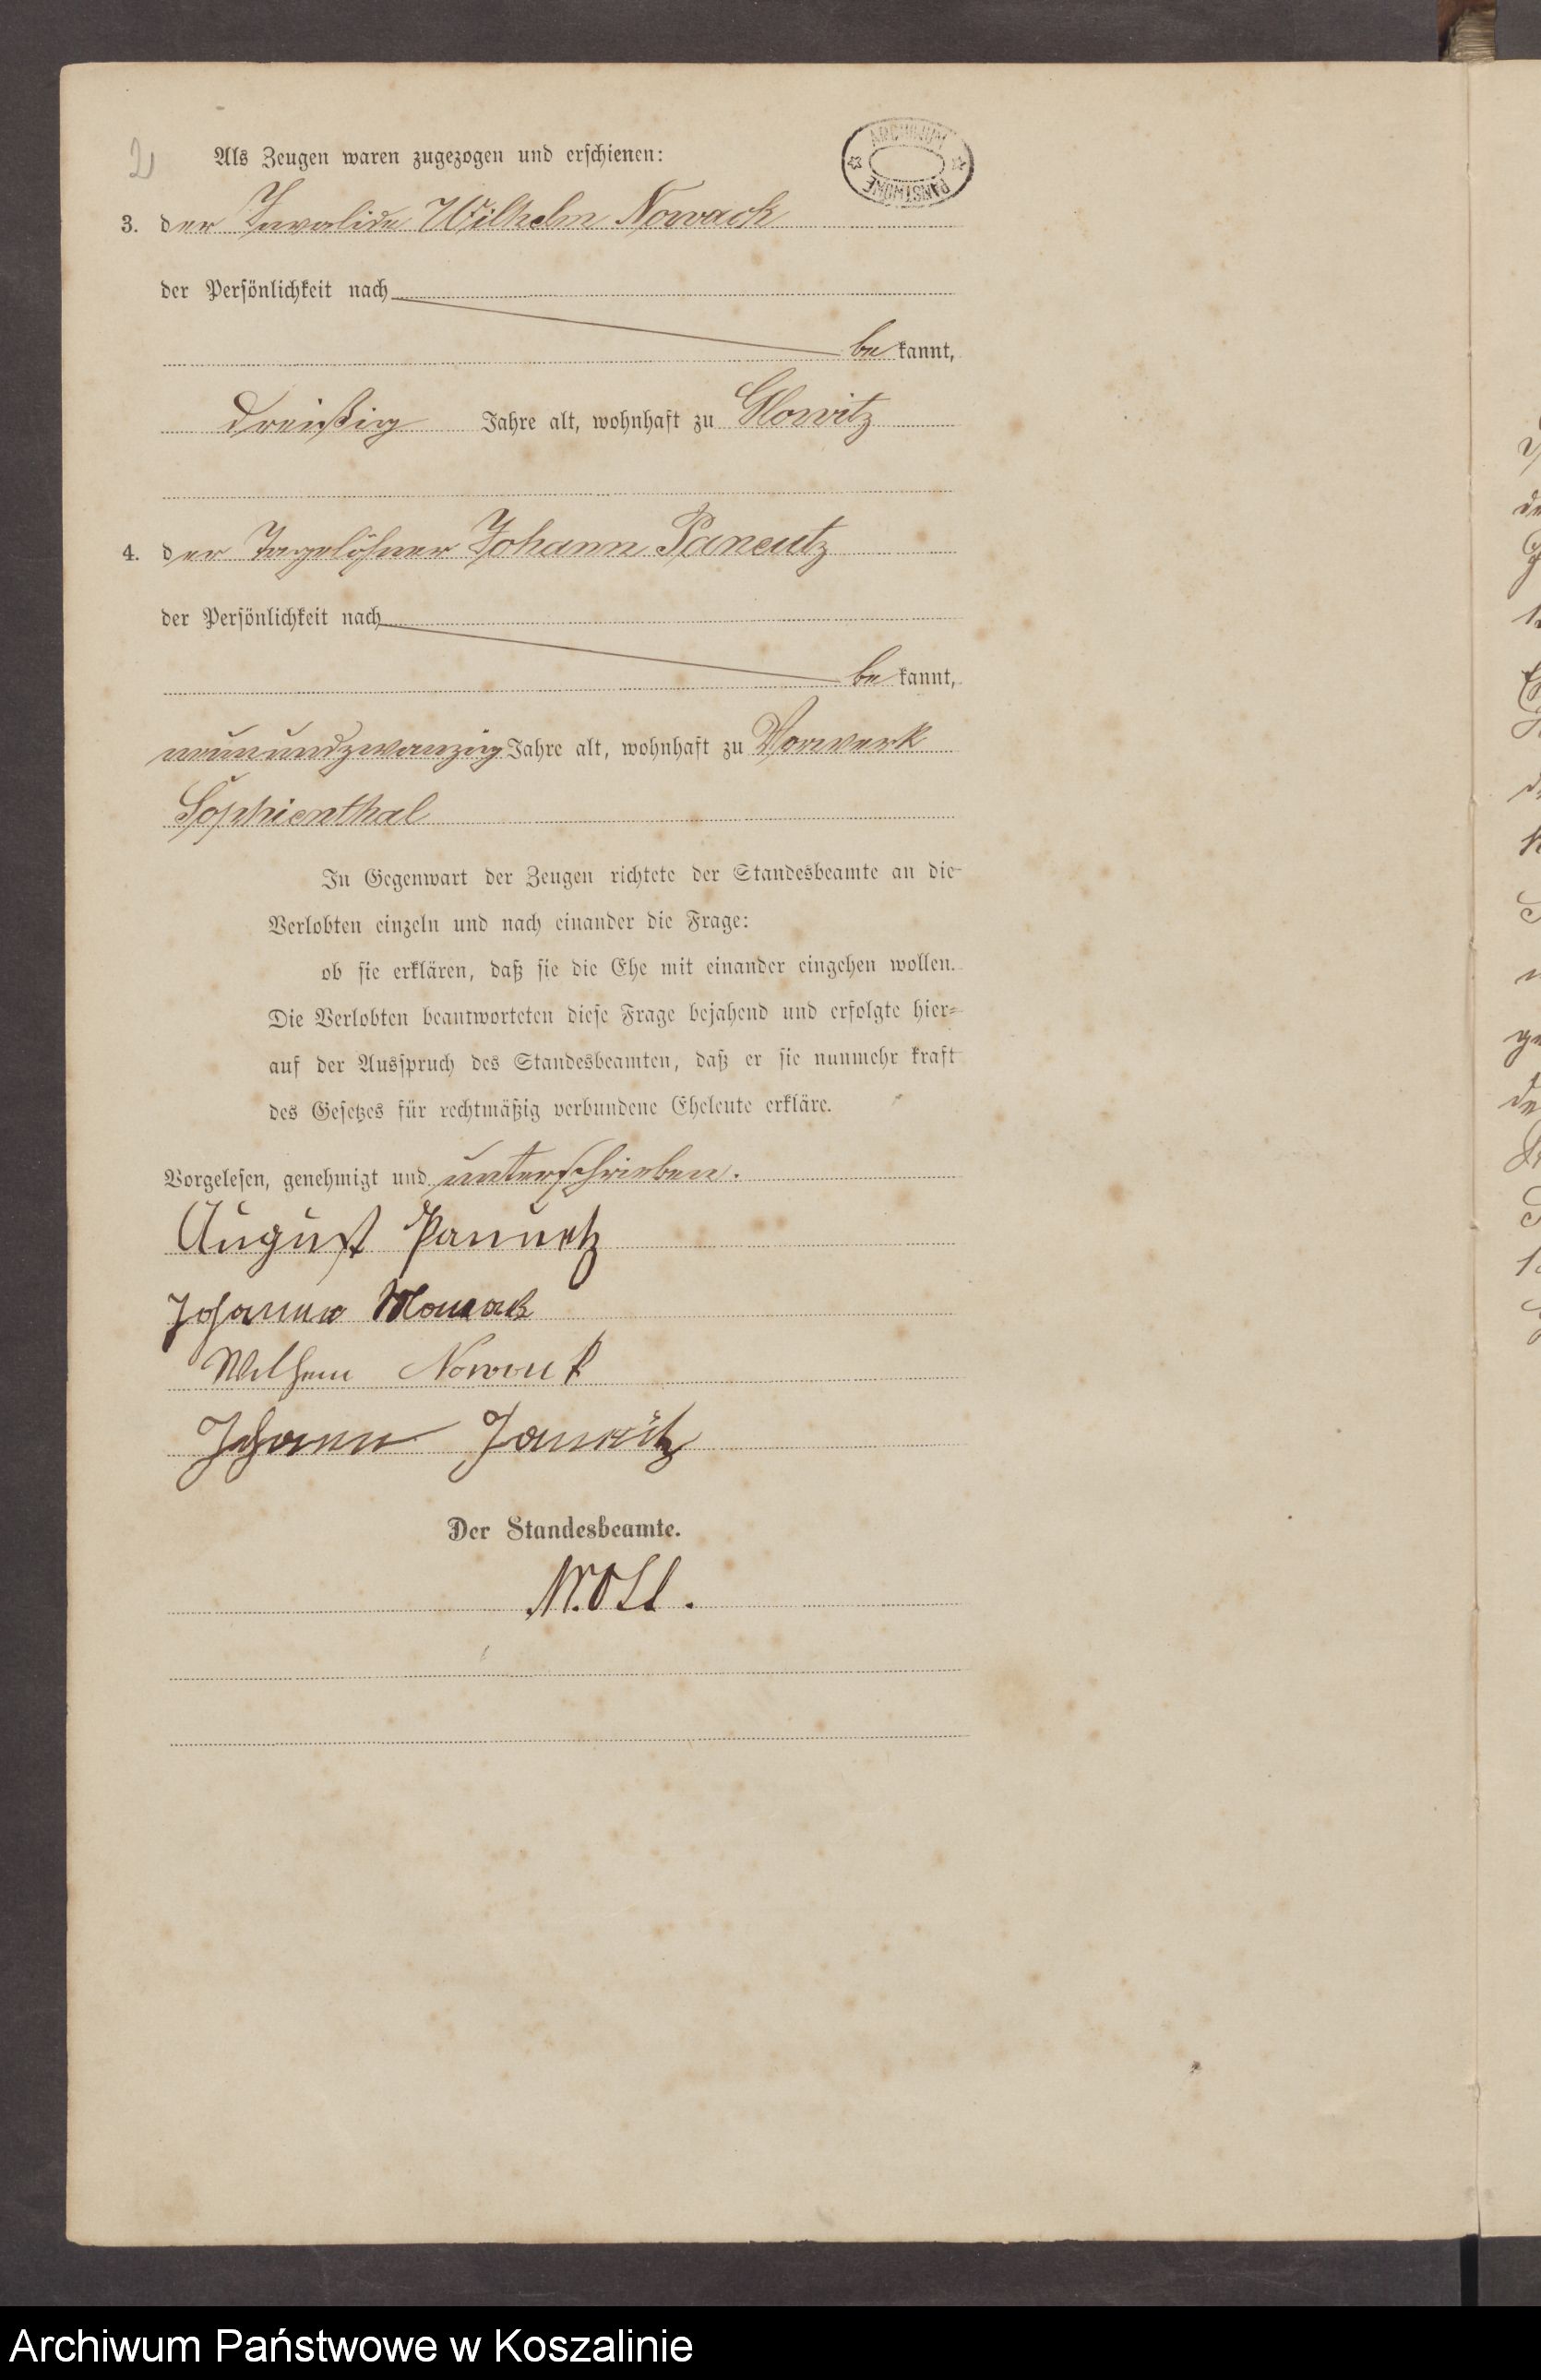 2
Als Zeugen waren zugezogen und erschienen:
ARCHIWUM PAŃSTWOWE
3. der Invalide Wilhelm Nowack
der Persönlichkeit nach
be kannt,
dreißig Jahre alt, wohnhaft zu Glowitz
4. der Tagelöhner Johann Paneutz
der Persönlichkeit nach
be kannt,
neunundzwanzig Jahre alt, wohnhaft zu Vorwerk
Sophienthal
In Gegenwart der Zeugen richtete der Standesbeamte an die
Verlobten einzeln und nach einander die Frage:
ob sie erklären, daß sie die Ehe mit einander eingehen wollen.
Die Verlobten beantworteten diese Frage bejahend und erfolgte hier-
auf der Ausspruch des Standesbeamten, daß er sie nunmehr kraft
des Gesetzes für rechtmäßig verbundene Eheleute erkläre.
Vorgelesen, genehmigt und unterschrieben.
August
Johanna
Nowack
Johann
Der Standesbeamte.
Archiwum Państwowe w Koszalinie